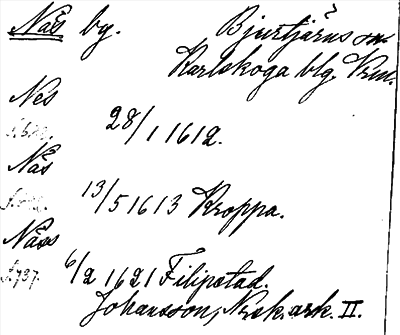 Näs by. Bjurtjärns sn
Karlskoga blg. Vrml.
Nes
28/1 1612.
Näs
13/5 1613 Kroppa.
Näss
6/2 1621 Filipstad.
Johansson, Nrsk. ark. II.